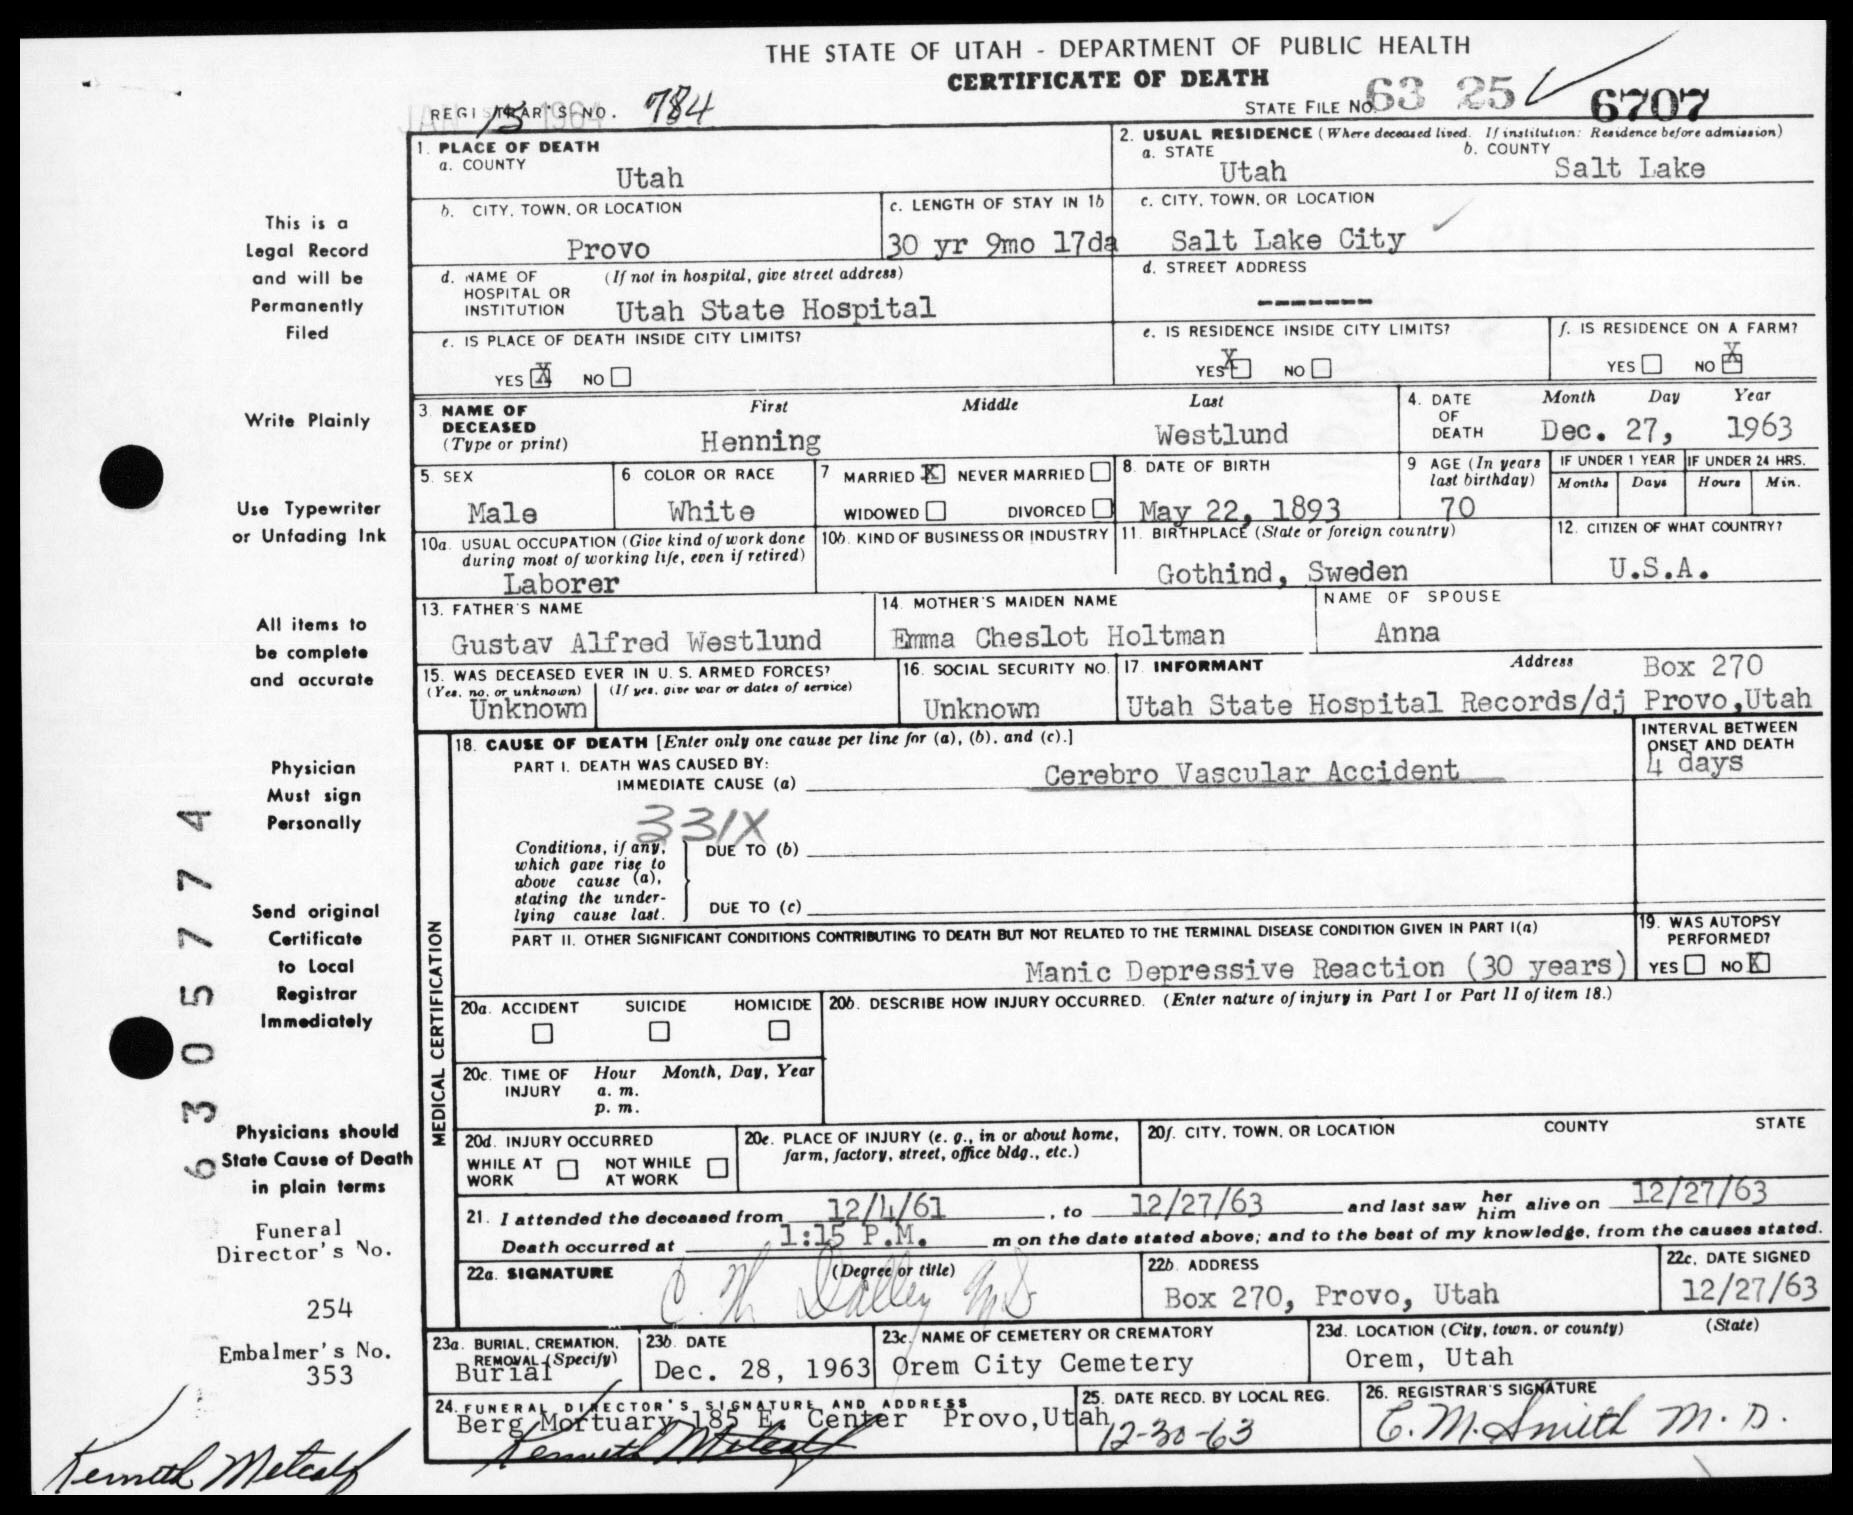 THE STATE OF UTAH - DEPARTMENT OF PUBLIC HEALTH
CERTIFICATE OF DEATH
REGISTRAR'S NO. 784
JAN 13 1964
STATE FILE NO. 63 25 6707
1. PLACE OF DEATH
a. COUNTY
Utah
2. USUAL RESIDENCE (Where deceased lived. If institution: Residence before admission)
a. STATE
Utah
b. COUNTY
Salt Lake
b. CITY, TOWN, OR LOCATION
Provo
c. LENGTH OF STAY IN 1b
30 yr 9mo 17da
c. CITY, TOWN, OR LOCATION
Salt Lake City
d. NAME OF (If not in hospital, give street address)
HOSPITAL OR
INSTITUTION Utah State Hospital
d. STREET ADDRESS
-------
e. IS PLACE OF DEATH INSIDE CITY LIMITS?
YES X NO
e. IS RESIDENCE INSIDE CITY LIMITS?
YES X NO
f. IS RESIDENCE ON A FARM?
YES NO X
3. NAME OF
DECEASED
(Type or print)
First Middle Last
Henning Westlund
4. DATE
OF
DEATH
Month Day Year
Dec. 27, 1963
5. SEX
Male
6 COLOR OR RACE
White
7 MARRIED X NEVER MARRIED
WIDOWED DIVORCED
8. DATE OF BIRTH
May 22, 1893
9 AGE (In years
last birthday)
70
IF UNDER 1 YEAR
Months Days
IF UNDER 24 HRS.
Hours Min.
10a. USUAL OCCUPATION (Give kind of work done
during most of working life, even if retired)
Laborer
10b. KIND OF BUSINESS OR INDUSTRY
11. BIRTHPLACE (State or foreign country)
Gothind, Sweden
12. CITIZEN OF WHAT COUNTRY?
U.S.A.
13. FATHER'S NAME
Gustav Alfred Westlund
14. MOTHER'S MAIDEN NAME
Emma Cheslot Holtman
NAME OF SPOUSE
Anna
15. WAS DECEASED EVER IN U. S. ARMED FORCES?
(Yes, no, or unknown) (If yes, give war or dates of service)
Unknown
16. SOCIAL SECURITY NO.
Unknown
17. INFORMANT Address Box 270
Utah State Hospital Records/dj Provo,Utah
MEDICAL CERTIFICATION
18. CAUSE OF DEATH [Enter only one cause per line for (a), (b), and (c).]
PART I. DEATH WAS CAUSED BY:
IMMEDIATE CAUSE (a) Cerebro Vascular Accident
INTERVAL BETWEEN
ONSET AND DEATH
4 days
331X
Conditions, if any,
which gave rise to
above cause (a),
stating the under-
lying cause last.
DUE TO (b)
DUE TO (c)
PART II. OTHER SIGNIFICANT CONDITIONS CONTRIBUTING TO DEATH BUT NOT RELATED TO THE TERMINAL DISEASE CONDITION GIVEN IN PART I(a)
Manic Depressive Reaction (30 years)
19. WAS AUTOPSY
PERFORMED?
YES NO X
20a. ACCIDENT SUICIDE HOMICIDE
20b. DESCRIBE HOW INJURY OCCURRED. (Enter nature of injury in Part I or Part II of item 18.)
20c. TIME OF Hour Month, Day, Year
INJURY a. m.
p. m.
20d. INJURY OCCURRED
WHILE AT NOT WHILE
WORK AT WORK
20e. PLACE OF INJURY (e. g., in or about home,
farm, factory, street, office bldg., etc.)
20f. CITY, TOWN, OR LOCATION COUNTY STATE
21. I attended the deceased from 12/4/61, to 12/27/63 and last saw her him alive on 12/27/63
Death occurred at 1:15 P.M. m on the date stated above; and to the best of my knowledge, from the causes stated.
22a. SIGNATURE (Degree or title)
C. H. Dalley MD
22b. ADDRESS
Box 270, Provo, Utah
22c. DATE SIGNED
12/27/63
23a. BURIAL, CREMATION,
REMOVAL (Specify)
Burial
23b. DATE
Dec. 28, 1963
23c. NAME OF CEMETERY OR CREMATORY
Orem City Cemetery
23d. LOCATION (City, town, or county) (State)
Orem, Utah
24. FUNERAL DIRECTOR'S SIGNATURE AND ADDRESS
Berg Mortuary 185 E. Center Provo,Utah
Kenneth Metcalf
25. DATE RECD. BY LOCAL REG.
12-30-63
26. REGISTRAR'S SIGNATURE
C. M. Smith M. D.
This is a
Legal Record
and will be
Permanently
Filed
Write Plainly
Use Typewriter
or Unfading Ink
All items to
be complete
and accurate
Physician
Must sign
Personally
Send original
Certificate
to Local
Registrar
Immediately
Physicians should
State Cause of Death
in plain terms
Funeral
Director's No.
254
Embalmer's No.
353
Kenneth Metcalf
63057774